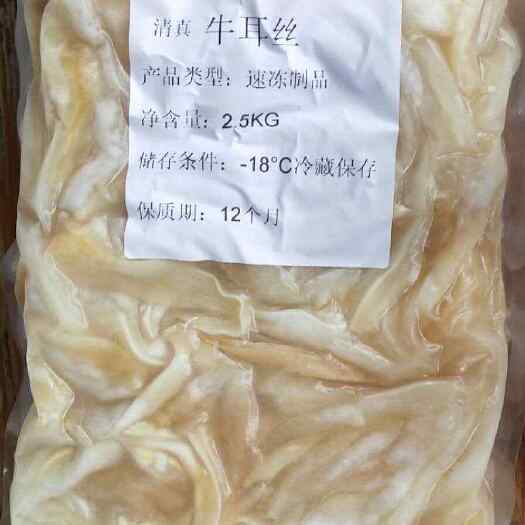 清真 牛耳丝
产品类型：速冻制品
净含量：2.5KG
储存条件：-18°C冷藏保存
保质期：12个月